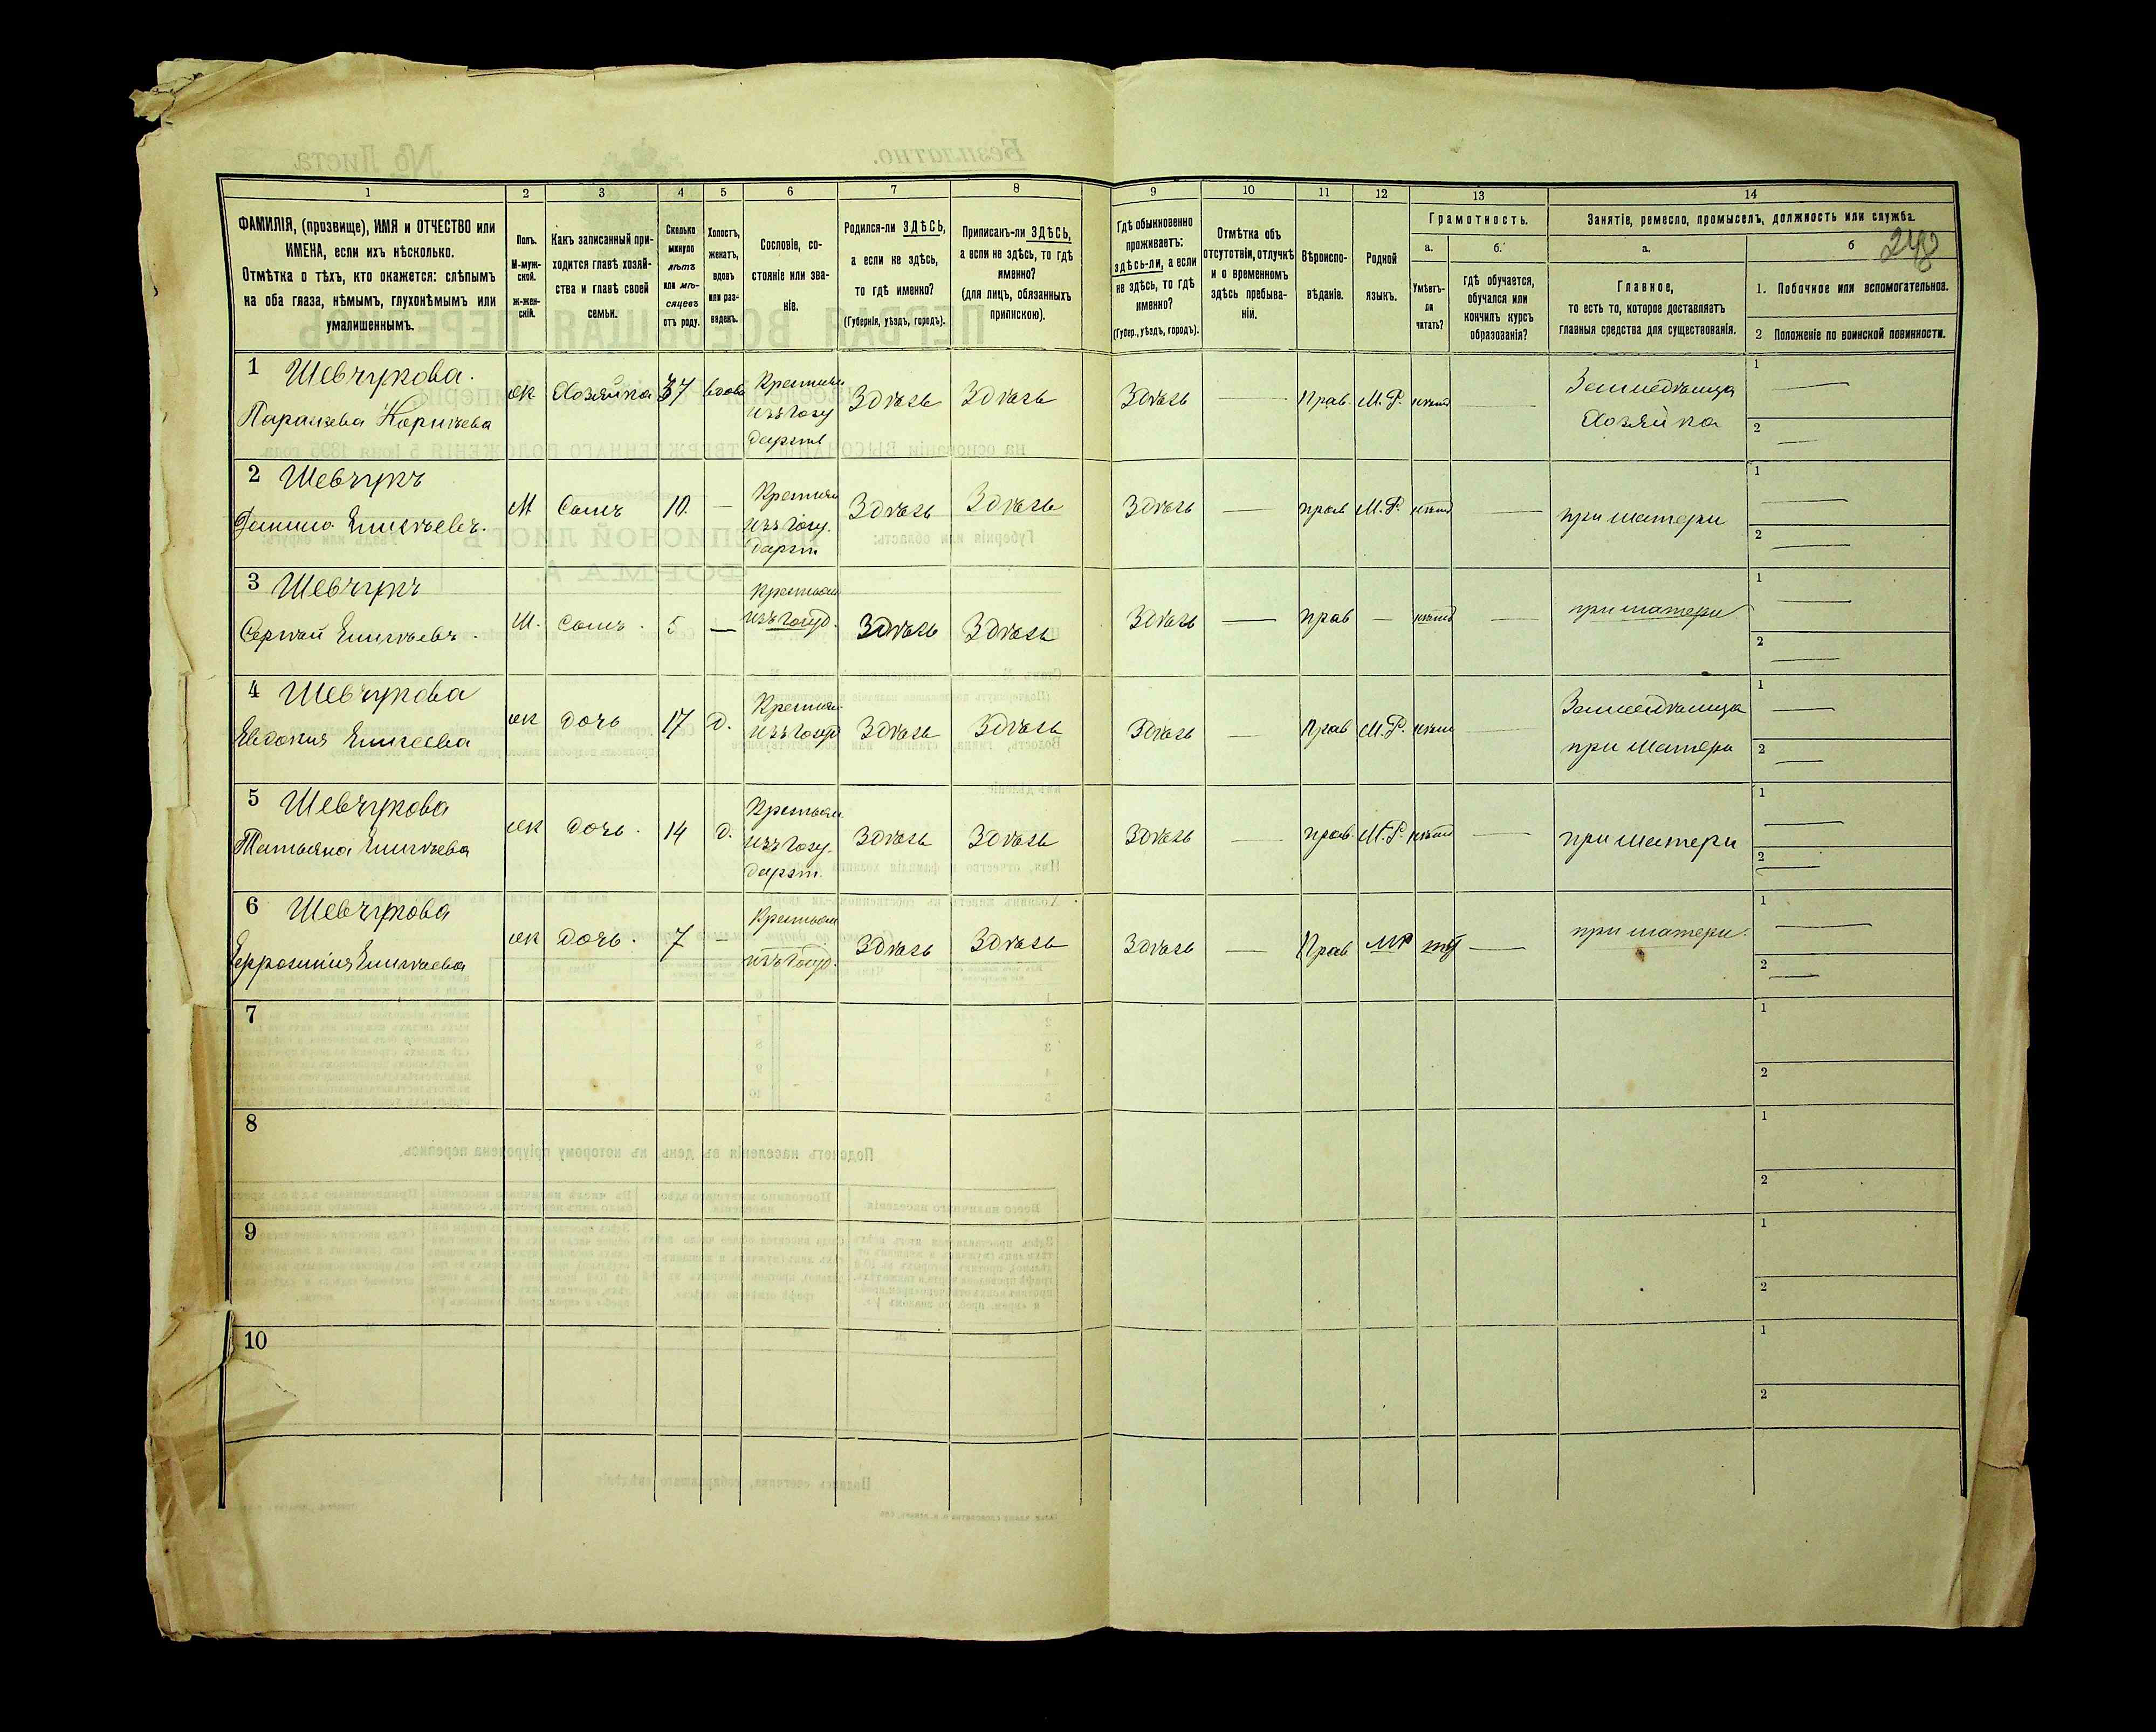 1 2 3 4 5 6 7 8 9 10 11 12 13 14
ФАМИЛІЯ, (прозвище), ИМЯ и ОТЧЕСТВО или
ИМЕНА, если ихъ нѣсколько.
Отмѣтка о тѣхъ, кто окажется: слѣпымъ
на оба глаза, нѣмымъ, глухонѣмымъ или
умалишеннымъ.
Полъ.
М-муж-
ской.
ж-жен-
скій.
Какъ записанный при-
ходится главѣ хозяй-
ства и главѣ своей
семьи.
Сколько
минуло
лѣтъ
или мѣ-
сяцевъ
отъ роду.
Холостъ,
женатъ,
вдовъ
или раз-
веденъ.
Сословіе, со-
стояніе или зва-
ніе.
Родился-ли ЗДѢСЬ,
а если не здѣсь,
то гдѣ именно?
(Губернія, уѣздъ, городъ).
Приписанъ-ли ЗДѢСЬ,
а если не здѣсь, то гдѣ
именно?
(для лицъ, обязанныхъ
припискою).
Гдѣ обыкновенно
проживаетъ:
здѣсь-ли, а если
не здѣсь, то гдѣ
именно?
(Губер., уѣздъ, городъ).
Отмѣтка объ
отсутствіи, отлучкѣ
и о временномъ
здѣсь пребыва-
ніи.
Вѣроиспо-
вѣданіе.
Родной
языкъ.
Грамотность.
а.
Умѣетъ-
ли
читать?
б.
гдѣ обучается,
обучался или
кончилъ курсъ
образованія?
Занятіе, ремесло, промыселъ, должность или служба.
а.
Главное,
то есть то, которое доставляетъ
главныя средства для существованія.
б
248
1. Побочное или вспомогательное.
2 Положеніе по воинской повинности.
1 Шевчукова.
Параскева
ж Хозяйка 37 вдова
Крестьян
изъ госу
дарств
Здѣсь Здѣсь Здѣсь — Прав. М.Р. нѣтъ —
Земледѣлица
Хозяйка
1 —
2 —
2 Шевчукъ
Данило Елисѣевъ.
М Сынъ 10. —
Крестьян
изъ госу.
дарст
Здѣсь Здѣсь Здѣсь — прав М.Р. нѣтъ —
при матери
1 —
2 —
3 Шевчукъ
Сергѣй Елисѣевъ.
М. Сынъ. 5 —
Крестьян
изъ госуд.
Здѣсь Здѣсь Здѣсь — прав — нѣтъ —
при матери
1 —
2 —
4 Шевчукова
Евдокия Елисеева
ж дочь 17 д.
Крестьян
изъ госуд
Здѣсь Здѣсь Здѣсь — Прав М.Р. нѣтъ —
Земледѣлица
при матери
1 —
2 —
5 Шевчукова
Татьяна Елисѣева
ж дочь. 14 д.
Крестьян
изъ госу.
дарст.
Здѣсь Здѣсь Здѣсь — прав. М.Р. нѣтъ —
при матери
1 —
2 —
6 Шевчукова
Ефросинія Елисѣева
ж дочь. 7 —
Крестьян
изъ госуд.
Здѣсь Здѣсь Здѣсь — Прав МР —
при матери.
1 —
2 —
7
1
2
8
1
2
9
1
2
10
1
2